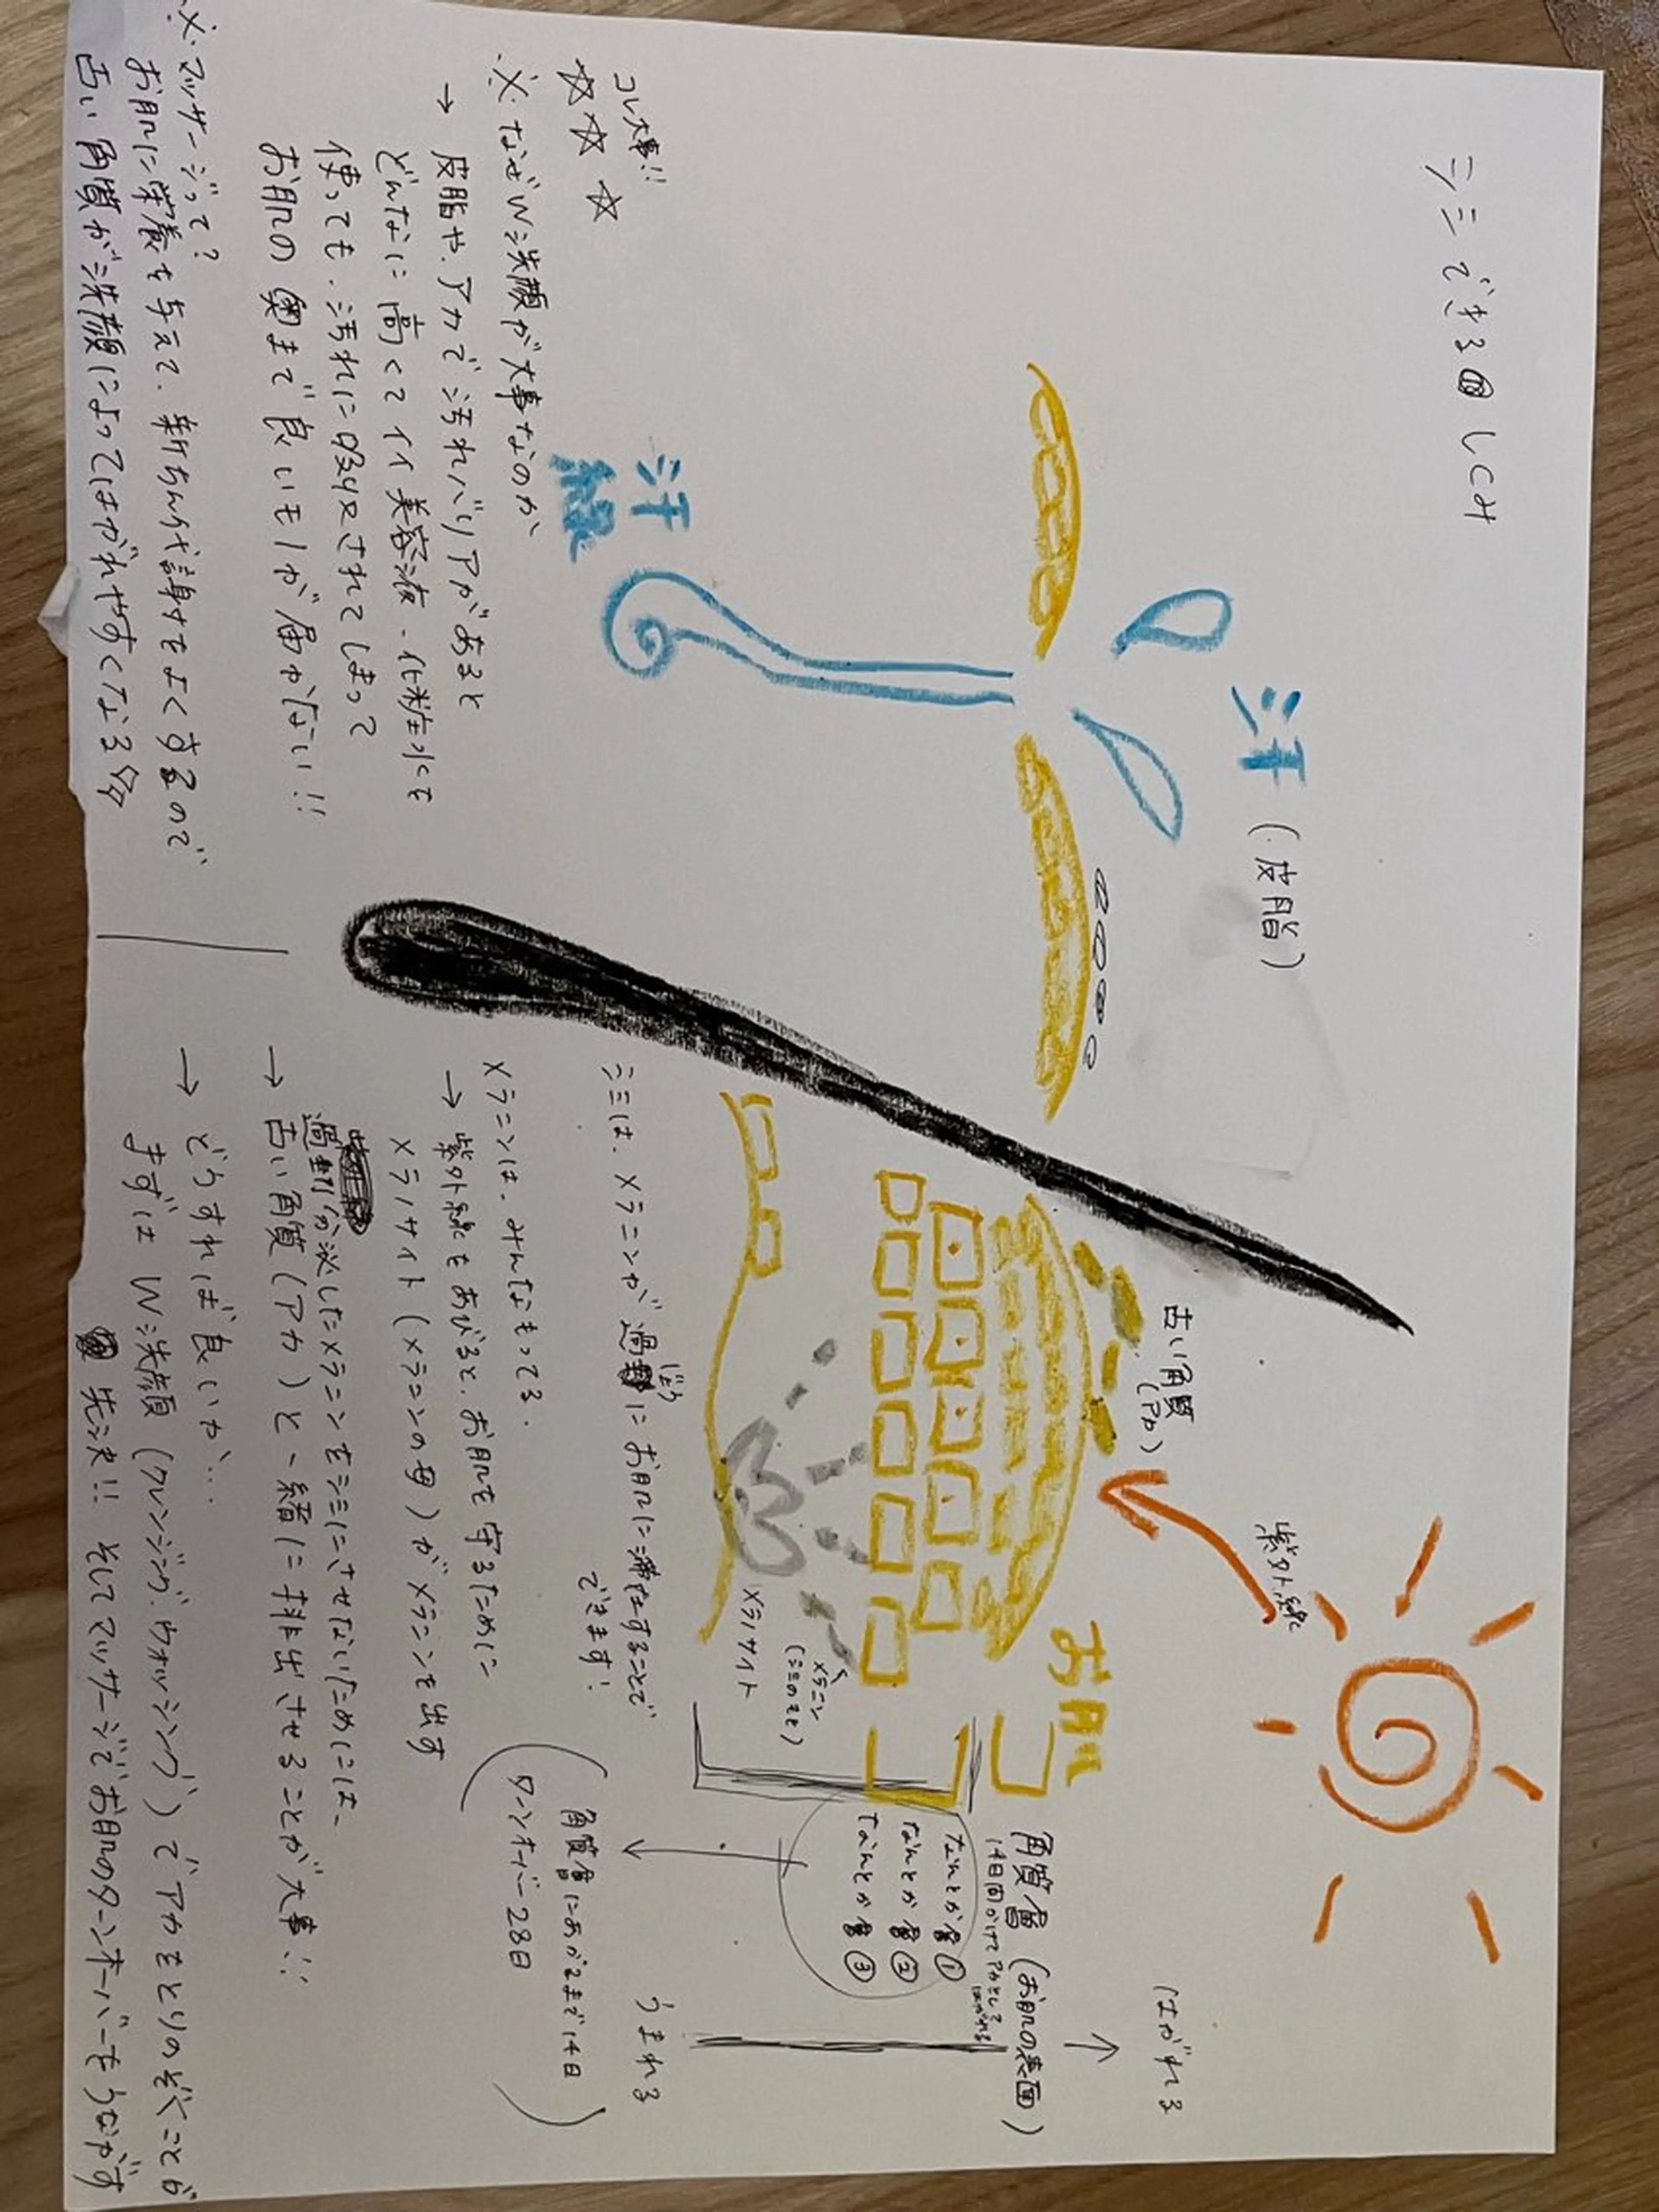 シミできるしくみ
汗(皮脂)
汗
線
コレ大事!!
☆☆☆
※なぜW洗顔が大事なのか
→ 皮脂や、アカで汚れバリアがあると
どんなに高くてイイ美容液・化粧水を
使っても、汚れに吸収されてしまって
お肌の奥まで良いモノが届かない!!
※マッサージって?
お肌に栄養を与えて、新ちん代謝をよくするので
古い角質が洗顔によってはがれやすくなる
紫外線
古い角質
(アカ)
お肌
メラノサイト
メラニン
(シミのもと)
はがれる
↑
角質層(お肌の表面)
14日間かけてアカとして
はがれる
なんとか層①
なんとか層②
なんとか層③
うまれる
角質層にあがるまで14日
ターンオーバー28日
シミは、メラニンが過剰にお肌に滞在することで
じょう
できます!
メラニンは、みんなもってる。
→ 紫外線をあびると、お肌を守るために
メラノサイト(メラニンの母)がメラニンを出す
過剰分泌したメラニンをシミにさせないためには、
→ 古い角質(アカ)と一緒に排出させることが大事!!
→ どうすれば良いか…
まずはW洗顔(クレンジング・ウォッシング)でアカをとりのぞくことが
先決!! そしてマッサージでお肌のターンオーバーをうながす